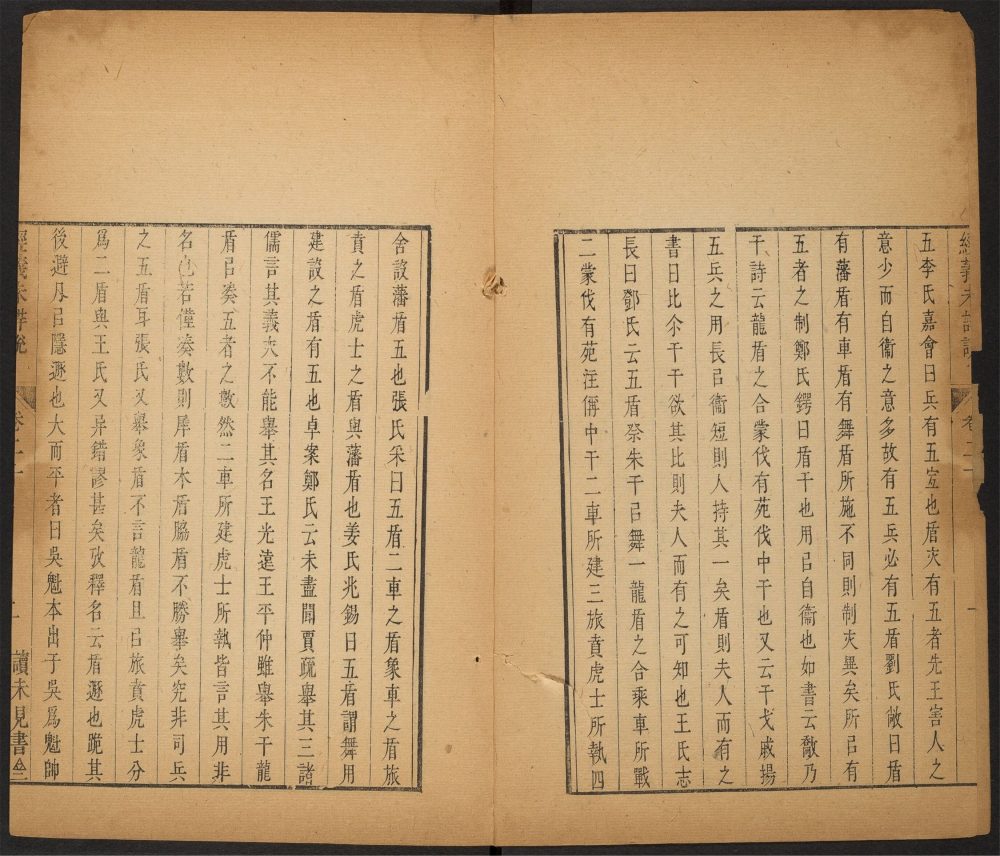 經義未詳說 卷二十 一
五李氏嘉會曰兵有五宐也盾夾有五者先王害人之
意少而自衞之意多故有五兵必有五盾劉氏敞曰盾
有藩盾有車盾有舞盾所施不同則制夾異矣所㠯有
五者之制鄭氏鍔曰盾干也用㠯自衞也如書云敿乃
干詩云龍盾之合蒙伐有苑伐中干也又云干戈戚揚
五兵之用長㠯衞短則人持其一矣盾則夫人而有之
書曰比尒干干欲其比則夫人而有之可知也王氏志
長曰鄧氏云五盾祭朱干㠯舞一龍盾之合乘車所戰
二蒙伐有苑注偁中干二車所建三旅賁虎士所執四
舍設藩盾五也張氏采曰五盾二車之盾象車之盾旅
賁之盾虎士之盾與藩盾也姜氏兆錫曰五盾謂舞用
建設之盾有五也卓案鄭氏云未盡聞賈疏舉其三諸
儒言其義夾不能舉其名王光遠王平仲雖舉朱干龍
盾㠯湊五者之數然二車所建虎士所執皆言其用非
名也若僅湊數則犀盾木盾脇盾不勝舉矣究非司兵
之五盾耳張氏又舉象盾不言龍盾且㠯旅賁虎士分
爲二盾與王氏又异錯謬甚矣攷釋名云盾遯也跪其
後避刃㠯隱遯也大而平者曰吳魁本出于吳爲魁帥
經義未詳說 卷二十 一 讀未見書